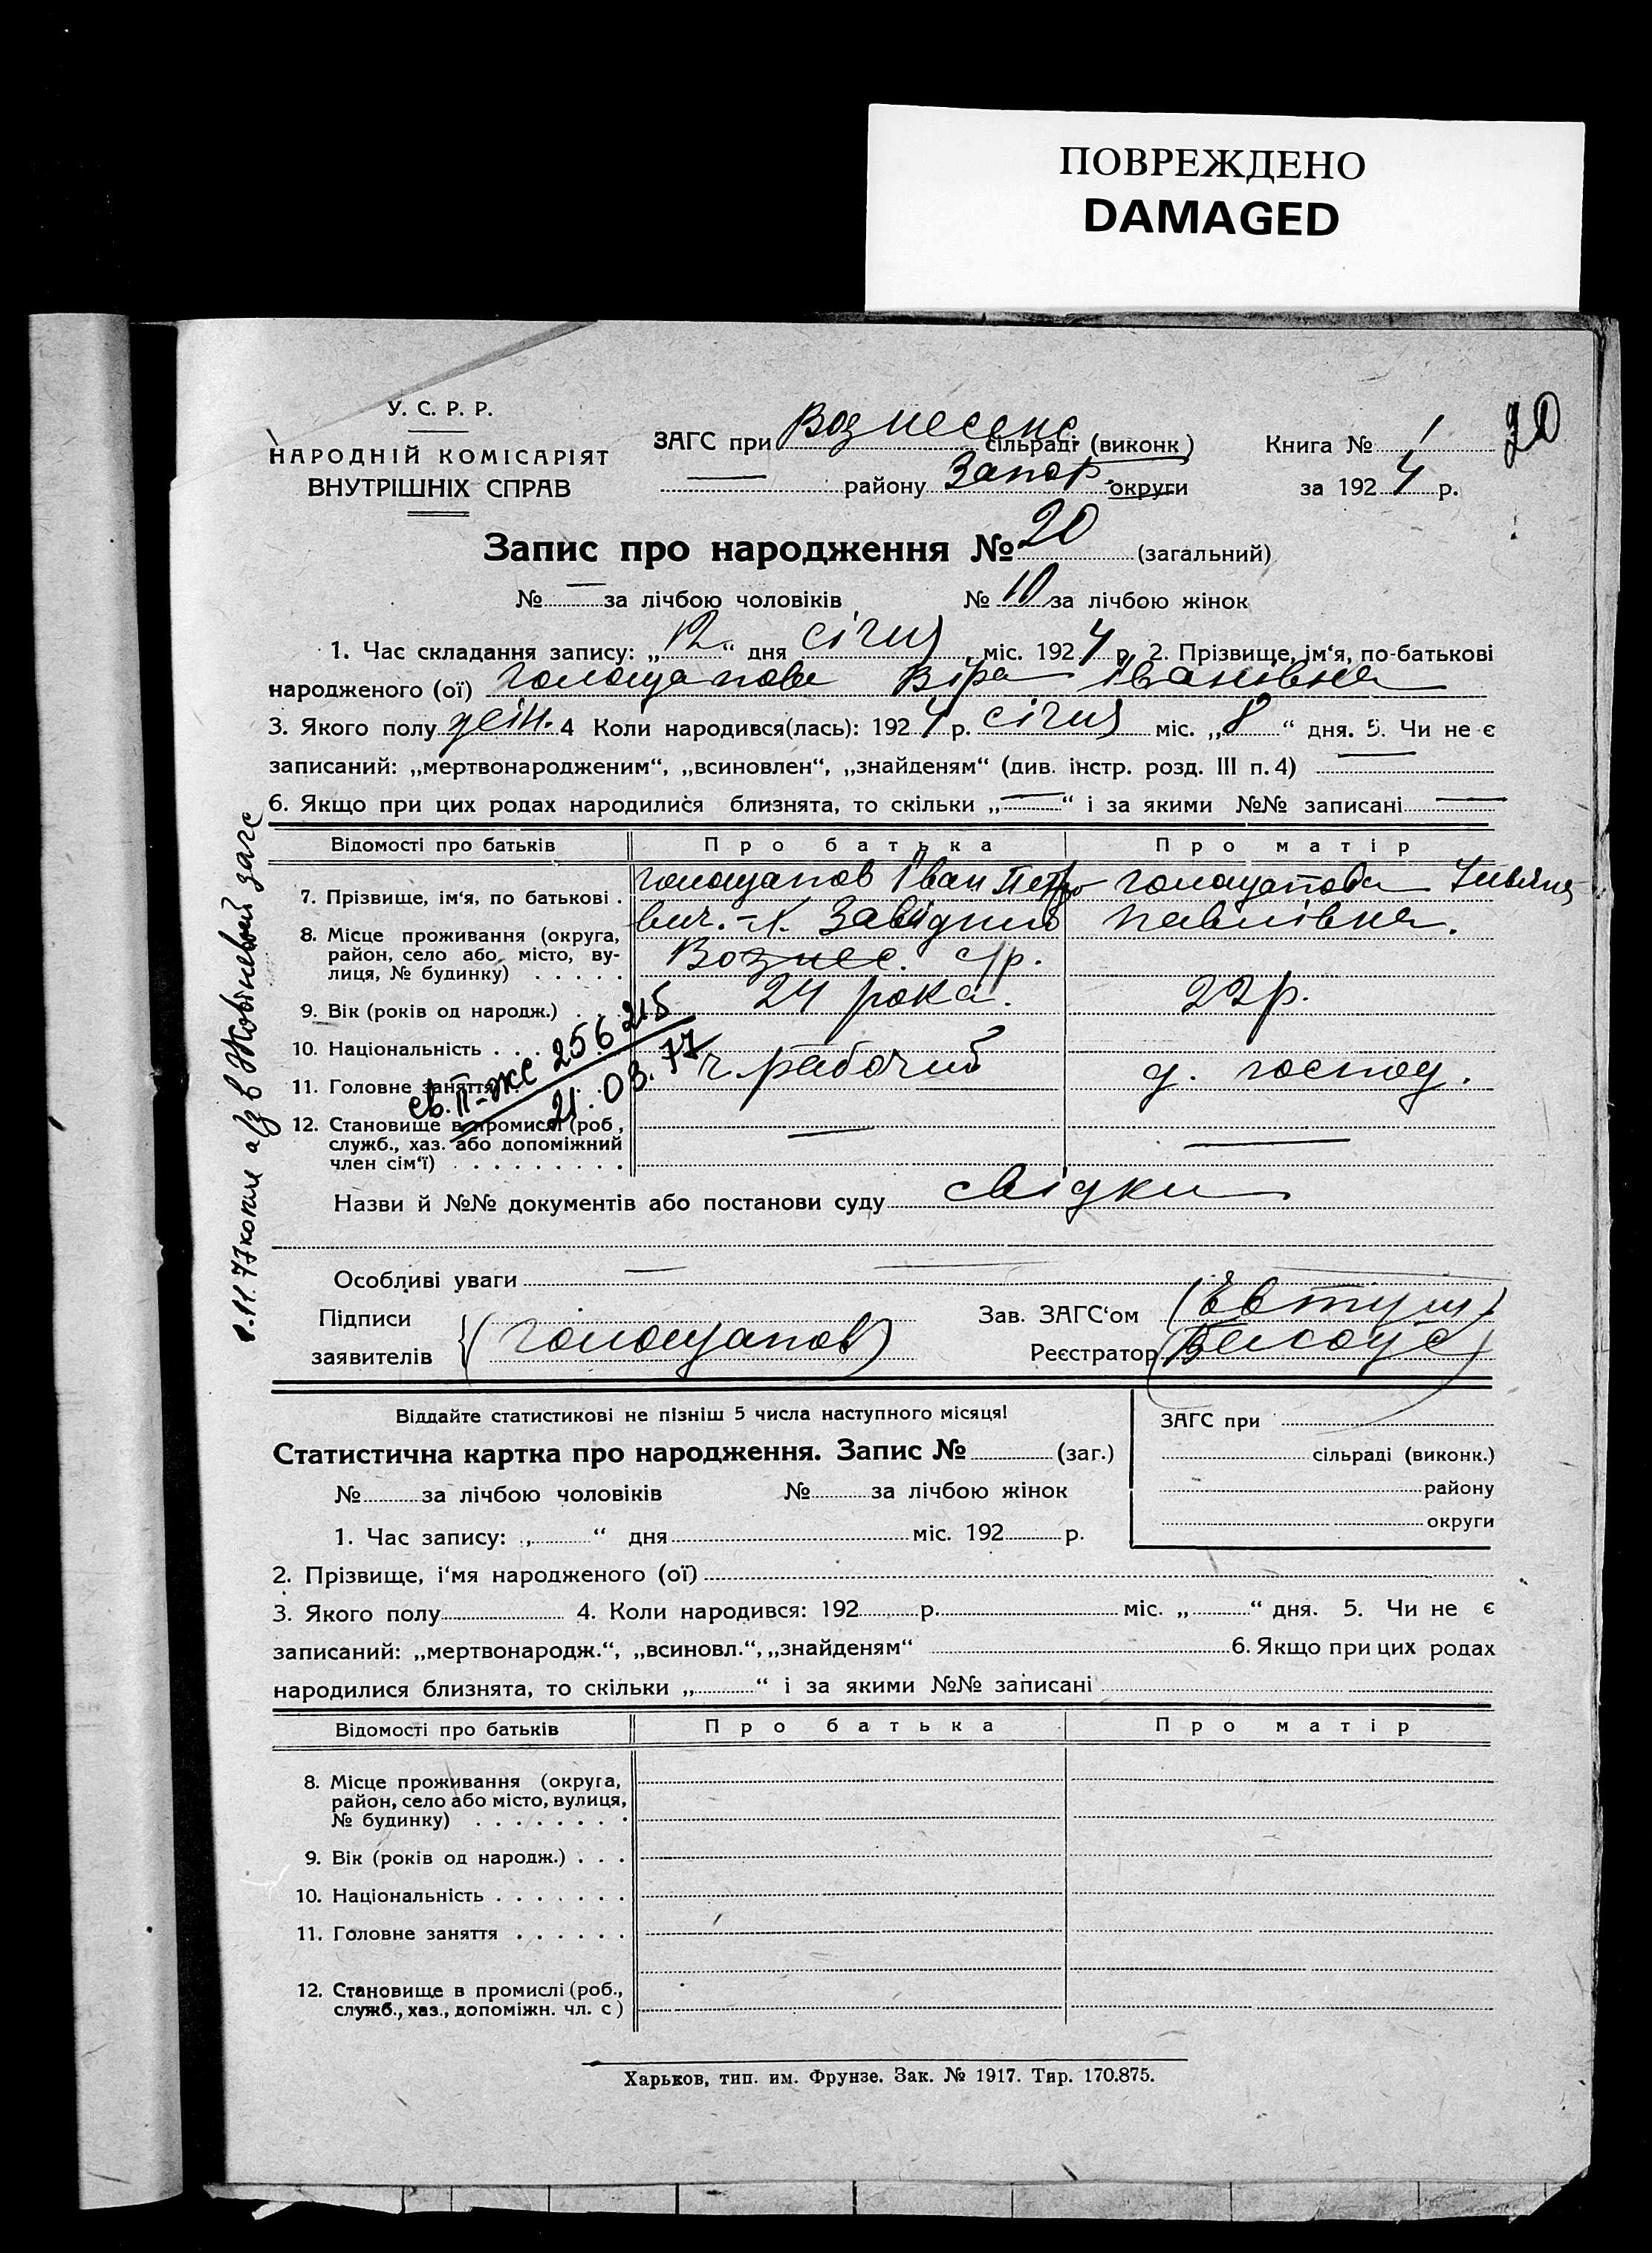 ПОВРЕЖДЕНО
DAMAGED
У. С. Р. Р.
НАРОДНІЙ КОМІСАРІЯТ
ВНУТРІШНІХ СПРАВ
ЗАГС при Вознесенс. сільраді (виконк)
— району Запор. округи
Книга № 1
за 1924 р.
20
Запис про народження № 20 (загальний)
№ — за лічбою чоловіків № 10 за лічбою жінок
1. Час складання запису: „12“ дня січня міс. 1924 р. 2. Прізвище, ім‘я, по-батькові
народженого (ої) Голощапова Віра Іванівна
3. Якого полу жін. 4 Коли народився(лась): 1924 р. січня міс. „8“ дня. 5. Чи не є
записаний: „мертвонародженим“, „всиновлен“, „знайденям“ (див. інстр. розд. III п. 4) —
6. Якщо при цих родах народилися близнята, то скільки „—“ і за якими №№ записані —
Відомості про батьків Про батька Про матір
7. Прізвище, ім‘я, по батькові . Голощапов Іван Петро Голощапова
вич. Павлівна.
8. Місце проживання (округа,
район, село або місто, ву-
лиця, № будинку) . . . . . Вознес. с/р.
9. Вік (років од народж.) . . . 24 рока. 22 р.
10. Національність . . .
11. Головне заняття . . . ч. рабочий д. господ.
12. Становище в промислі (роб.,
служб., хаз. або допоміжний
член сім‘ї) . . . . . . . . . — —
св. II-жс 256215
21.03.77
Жовтневый загс
Назви й №№ документів або постанови суду свідки
Особливі уваги — —
Підписи
заявителів (Голощапов)
Зав. ЗАГС‘ом (Євтуш)
Реєстратор (Белоус)
Віддайте статистикові не пізніш 5 числа наступного місяця!
Статистична картка про народження. Запис № (заг.)
ЗАГС при
сільраді (виконк.)
району
округи
№ за лічбою чоловіків № за лічбою жінок
1. Час запису: „ “ дня міс. 192 р.
2. Прізвище, і‘мя народженого (ої)
3. Якого полу 4. Коли народився: 192 р. міс. „ “ дня. 5. Чи не є
записаний: „мертвонародж.“, „всиновл.“, „знайденям“ 6. Якщо при цих родах
народилися близнята, то скільки „ “ і за якими №№ записані
Відомості про батьків Про батька Про матір
8. Місце проживання (округа,
район, село або місто, вулиця,
№ будинку) . . . . . . . .
9. Вік (років од народж.) . . .
10. Національність . . . . . . .
11. Головне заняття . . . . . .
12. Становище в промислі (роб.,
служб., хаз., допоміжн. чл. с )
Харьков, тип. им. Фрунзе. Зак. № 1917. Тир. 170.875.